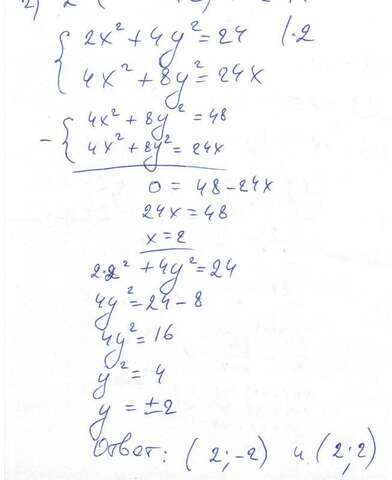 2)
2x² + 4y² = 24 | · 2
4x² + 8y² = 24x
- { 4x² + 8y² = 48
4x² + 8y² = 24x
0 = 48 - 24x
24x = 48
x = 2
2·2² + 4y² = 24
4y² = 24 - 8
4y² = 16
y² = 4
y = ±2
Ответ: (2; -2) и (2; 2)